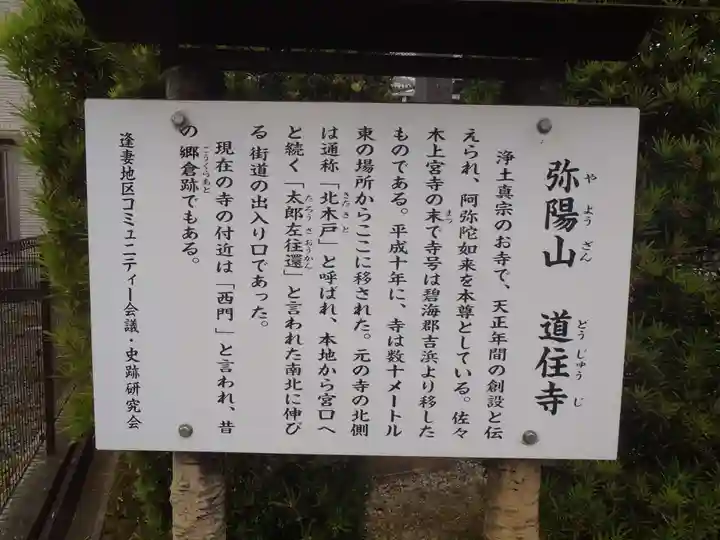 弥陽山 道住寺
や よう ざん どう じゅう じ
浄土真宗のお寺で、天正年間の創設と伝
えられ、阿弥陀如来を本尊としている。佐々
木上宮寺の末で寺号は碧海郡吉浜より移した
まつ
ものである。平成十年に、寺は数十メートル
東の場所からここに移された。元の寺の北側
は通称「北木戸」と呼ばれ、本地から宮口へ
きたきど
と続く「太郎左往還」と言われた南北に伸び
たろうさおうかん
る街道の出入り口であった。
現在の寺の付近は「西門」と言われ、昔
の郷倉跡でもある。
ごうくらあと
逢妻地区コミュニティー会議・史跡研究会